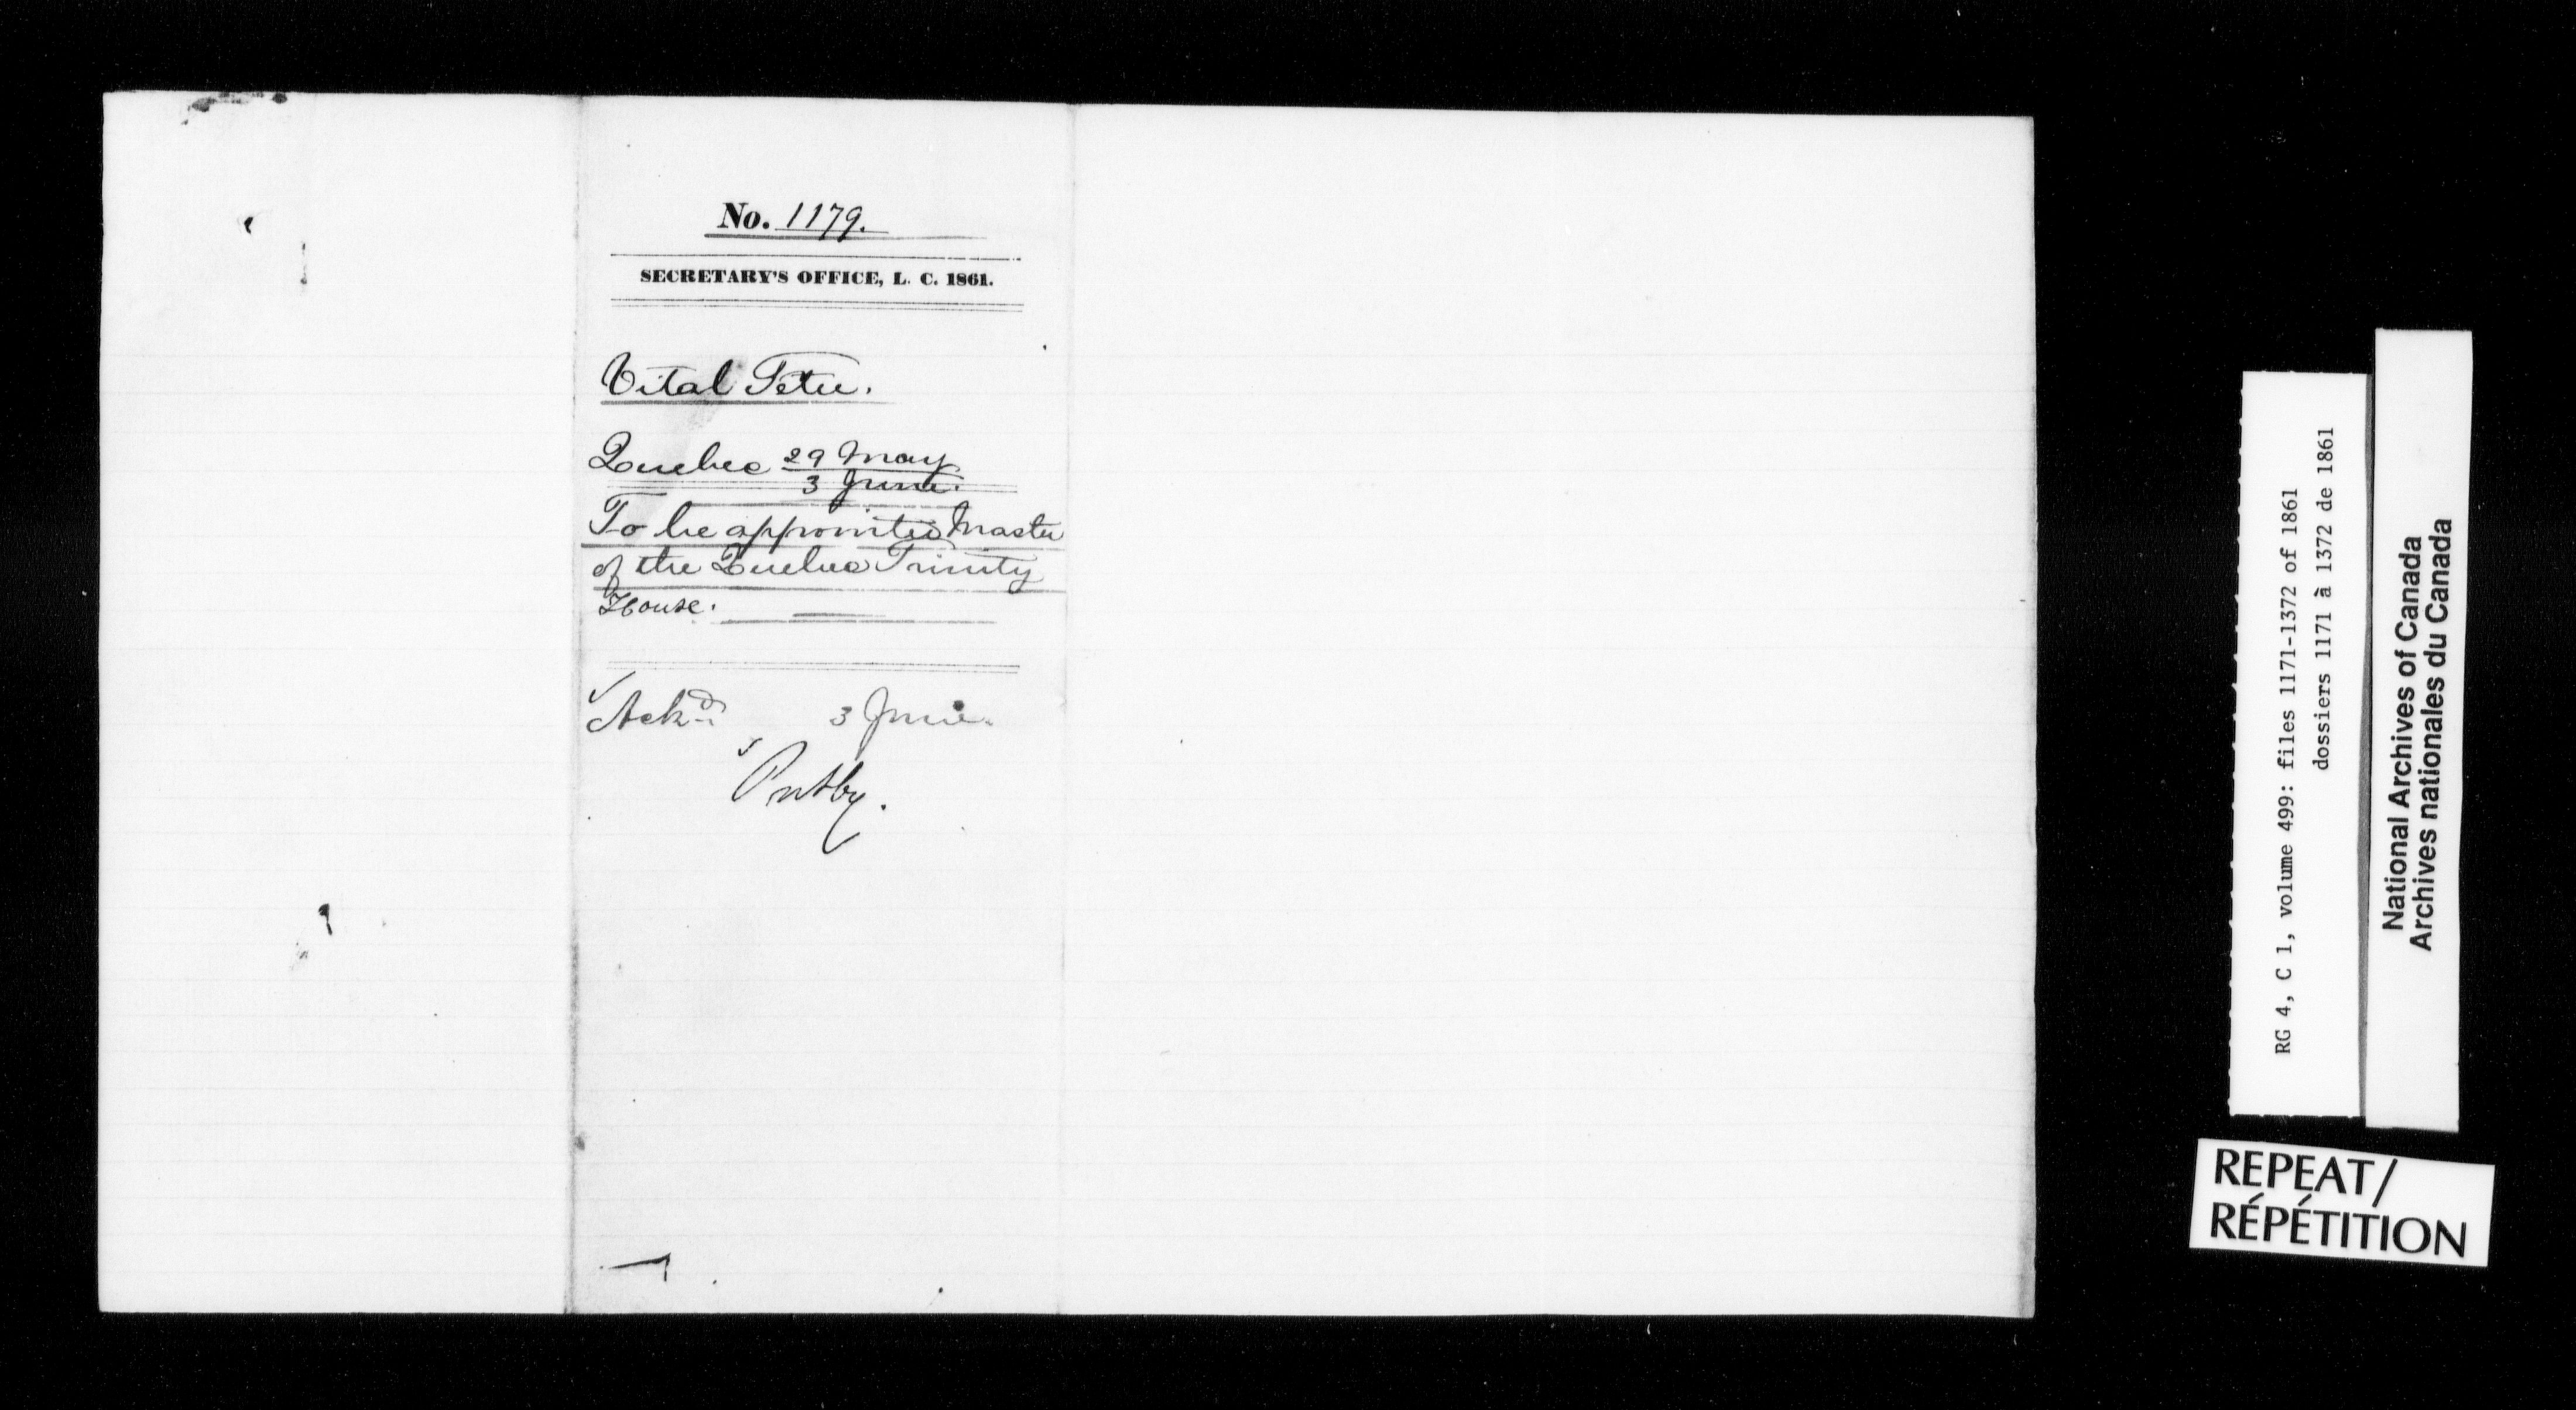 No. 1179.
SECRETARY'S OFFICE, L. C. 1861.
Vital Tetu.
Quebec 29 May
3 June.
To be appointed Master
of the Quebec Trinity
House.
Ackd 3 June.
RG 4, C 1, volume 499: files 1171-1372 of 1861
dossiers 1171 à 1372 de 1861
National Archives of Canada
Archives nationales du Canada
REPEAT/
RÉPÉTITION